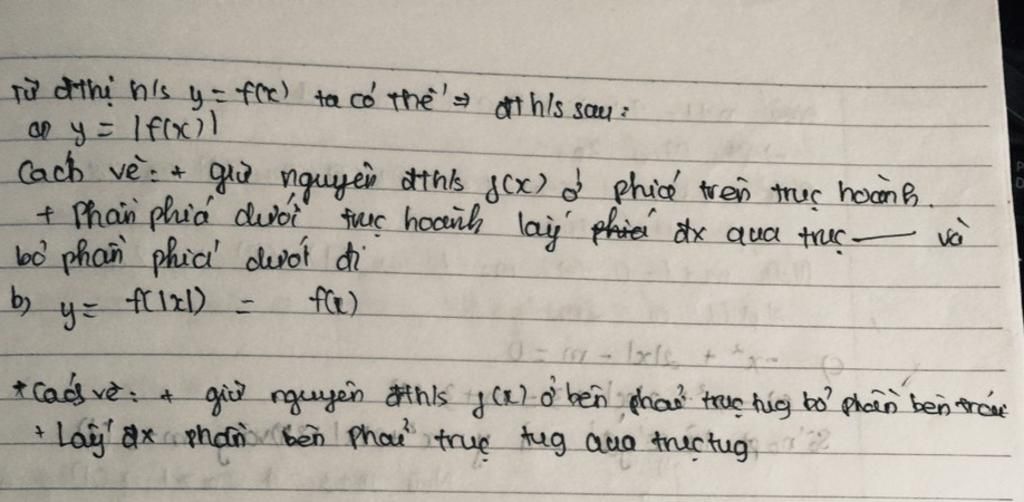 Từ đthị h/s y = f(x) ta có thể ⇒ đt h/s sau:
a) y = |f(x)|
Cách vẽ: + giữ nguyên đths f(x) ở phía trên trục hoành.
+ Phần phía dưới trục hoành lấy phía đx qua trục — và
bỏ phần phía dưới đi
b) y = f(|x|) = f(x)
* Cách vẽ: + giữ nguyên đths f(x) ở bên phải trục tug bỏ phần bên trái
+ Lấy đx phần bên phải trục tug qua trục tug